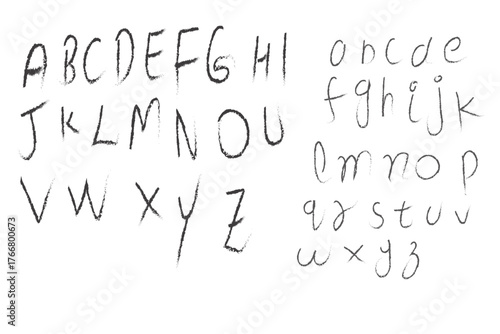 A B C D E F G H I
J K L M N O U
V W X Y Z
a b c d e
f g h i j k
l m n o p
q r s t u v
w x y z
Adobe Stock | #1766800673